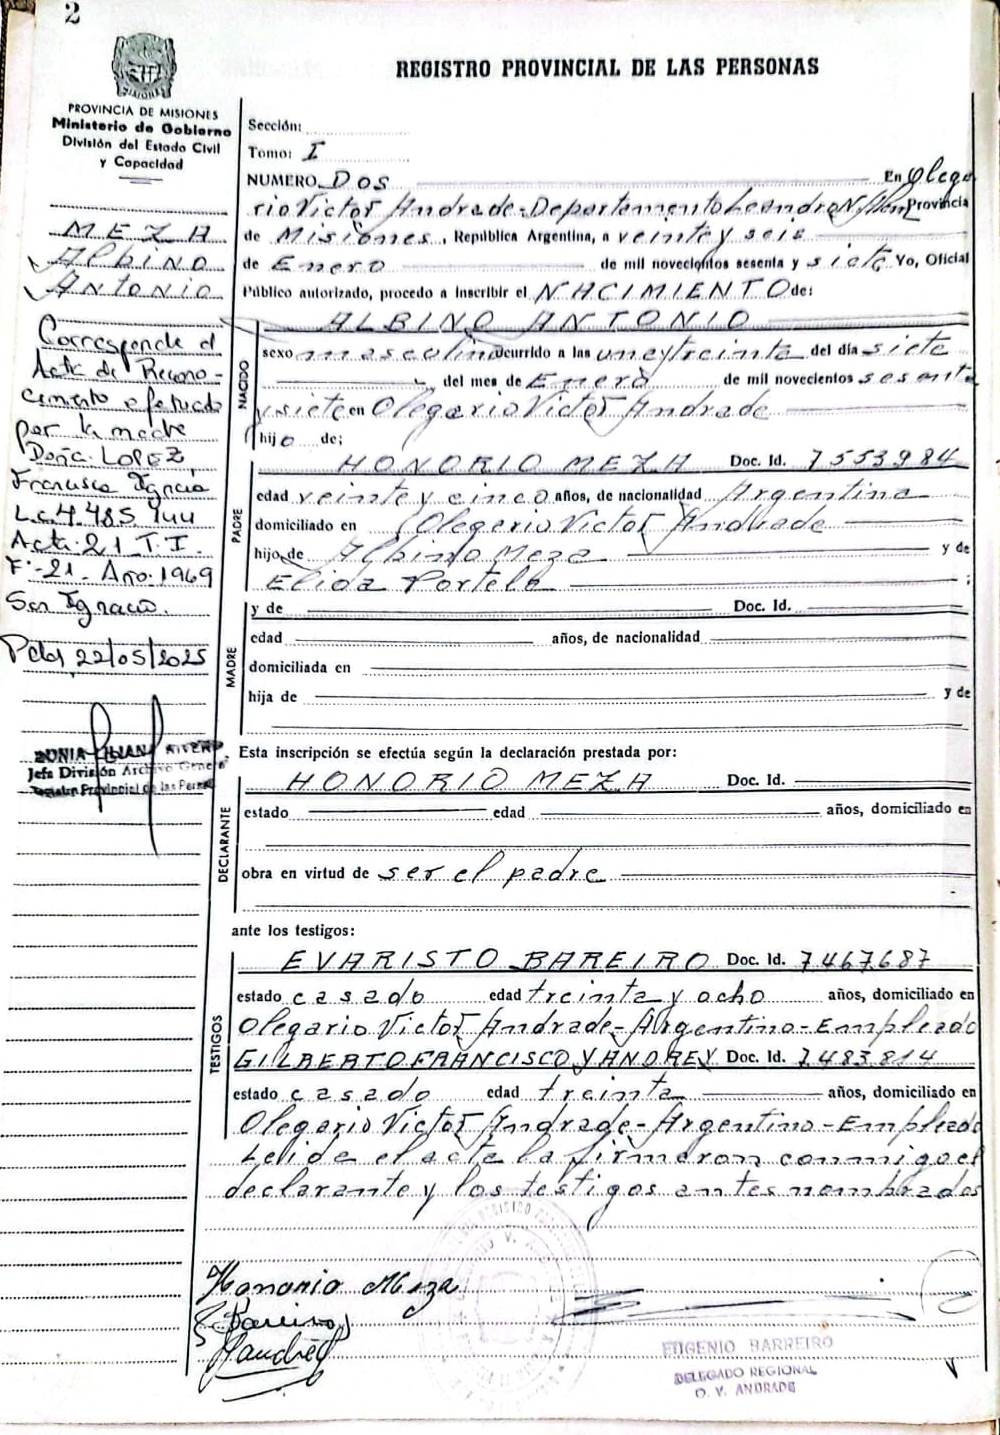 2
REGISTRO PROVINCIAL DE LAS PERSONAS
PROVINCIA DE MISIONES
Ministerio de Gobierno
División del Estado Civil
y Capacidad
MEZA
Albino
Antonio
Corresponde al
Acta de Recono-
cimiento efectuado
por la madre
Doña LOPEZ,
Francisca Ignacia
L.C. 4.485.944
Acta 21 T.I.
F°-21- Año 1969
San Ignacio.
Pdas 22/05/2025
SONIA LILIANA RIVERO
Jefa División Archivo General
Registro Provincial de las Personas
Sección:
Tomo: I
NUMERO DOS En Olega
rio Victor Andrade-Departamento Leandro N. Alem Provincia
de Misiones, República Argentina, a veinte y seis
de Enero de mil novecientos sesenta y siete Yo, Oficial
Público autorizado, procedo a inscribir el NACIMIENTO de:
NACIDO
ALBINO ANTONIO
sexo masculino ocurrido a las una y treinta del día siete
del mes de Enero de mil novecientos sesenta
y siete en Olegario Victor Andrade
hijo de;
PADRE
HONORIO MEZA Doc. Id. 7553984
edad veinte y cinco años, de nacionalidad Argentina
domiciliado en Olegario Victor Andrade
hijo de Albino Meza y de
Elida Portela ;
MADRE
y de Doc. Id.
edad años, de nacionalidad
domiciliada en
hija de y de
Esta inscripción se efectúa según la declaración prestada por:
DECLARANTE
HONORIO MEZA Doc. Id.
estado edad años, domiciliado en
obra en virtud de ser el padre
ante los testigos:
TESTIGOS
EVARISTO BAREIRO Doc. Id. 7.467.687
estado casado edad treinta y ocho años, domiciliado en
Olegario Victor Andrade-Argentino-Empleado
GILBERTO FRANCISCO YANDREY Doc. Id. 7.483.814
estado casado edad treinta años, domiciliado en
Olegario Victor Andrade-Argentino-Empleado
Leida el acta la firmaron conmigo el
declarante y los testigos antes nombrados
Honorio Meza
Bareiro
EUGENIO BARREIRO
DELEGADO REGIONAL
O. V. ANDRADE